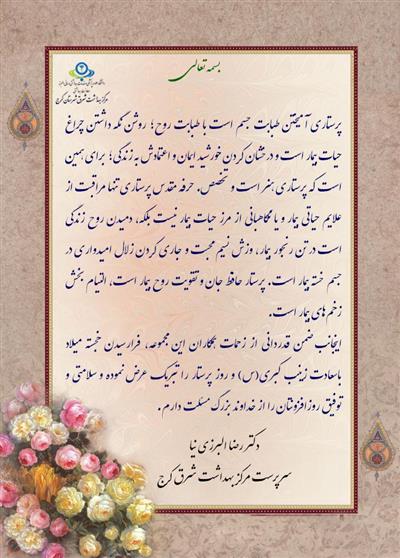 بسمه تعالی
مرکز بهداشت شرق شهرستان کرج
پرستاری آمیختن طبابت جسم است با طبابت روح؛ روشن نگه داشتن چراغ
حیات بیمار است و درخشان کردن خورشید ایمان و اعتمادش به زندگی؛ برای همین
است که پرستاری هنر است و تخصص. حرفه مقدس پرستاری تنها مراقبت از
علایم حیاتی بیمار و یا نگاهبانی از مرز حیات بیمار نیست بلکه، دمیدن روح زندگی
است در تن رنجور بیمار، وزش نسیم محبت و جاری کردن زلال امیدواری در
جسم خسته بیمار است. پرستار حافظ جان و تقویت روح بیمار است، التیام بخش
زخم های بیمار است.
اینجانب ضمن قدردانی از زحمات همکاران این مجموعه، فرارسیدن خجسته میلاد
باسعادت زینب کبری (س) و روز پرستار را تبریک عرض نموده و سلامتی و
توفیق روزافزونتان را از خداوند بزرگ مسئلت دارم.
دکتر رضا البرزی نیا
سرپرست مرکز بهداشت شرق کرج